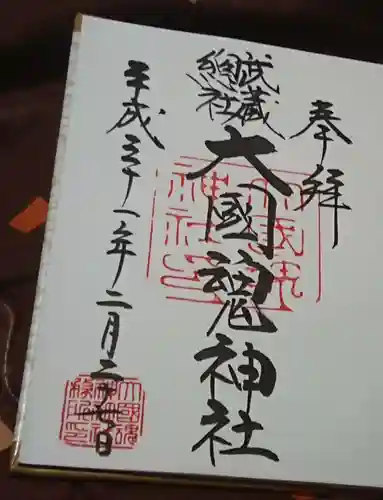 奉拝
武蔵
總社
大國魂神社
平成二十一年二月二十七日